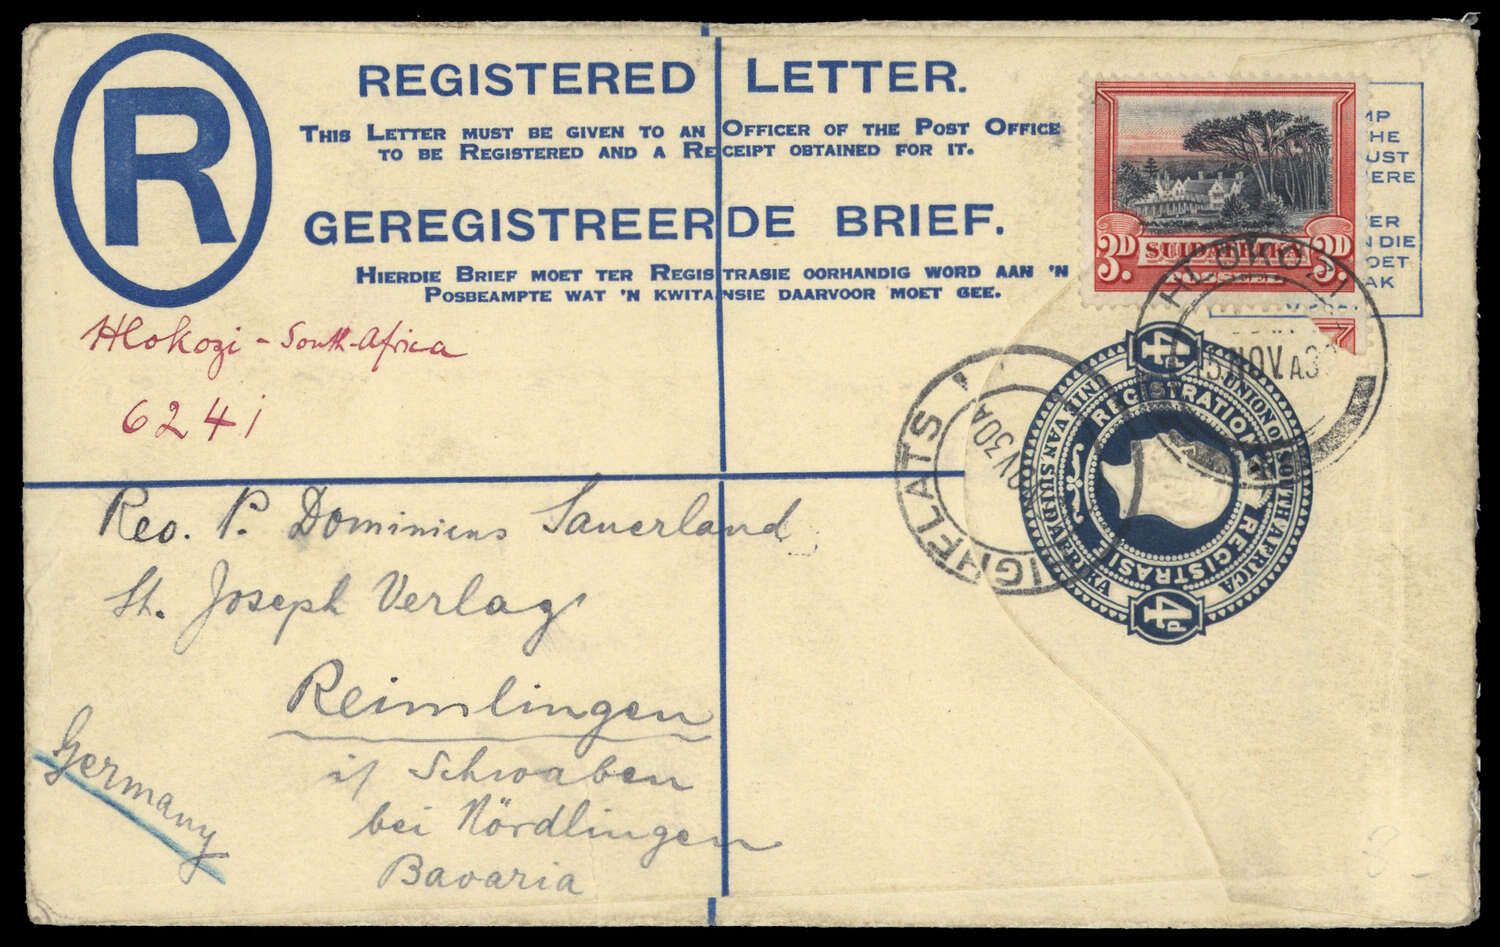 R
REGISTERED LETTER.
THIS LETTER MUST BE GIVEN TO AN OFFICER OF THE POST OFFICE
TO BE REGISTERED AND A RECEIPT OBTAINED FOR IT.
GEREGISTREERDE BRIEF.
HIERDIE BRIEF MOET TER REGISTRASIE OORHANDIG WORD AAN 'N
POSBEAMPTE WAT 'N KWITANSIE DAARVOOR MOET GEE.
3D. SUIDAFRIKA 3D.
POSSEEL
MP
HE
UST
ERE
ER
DIE
OET
AK
HLOKOZI
15 NOV. A 3
Hlokozi - South-Africa
6241
HIGHFLATS
OV 30 A
4D
UNION OF SOUTH AFRICA
REGISTRATION
UNIE VAN SUID AFRIKA
REGISTRASIE
4D
Rev. P. Dominicus Sauerland
St. Joseph Verlag
Reimlingen
if Schwaben
bei Nördlingen
Bavaria
Germany